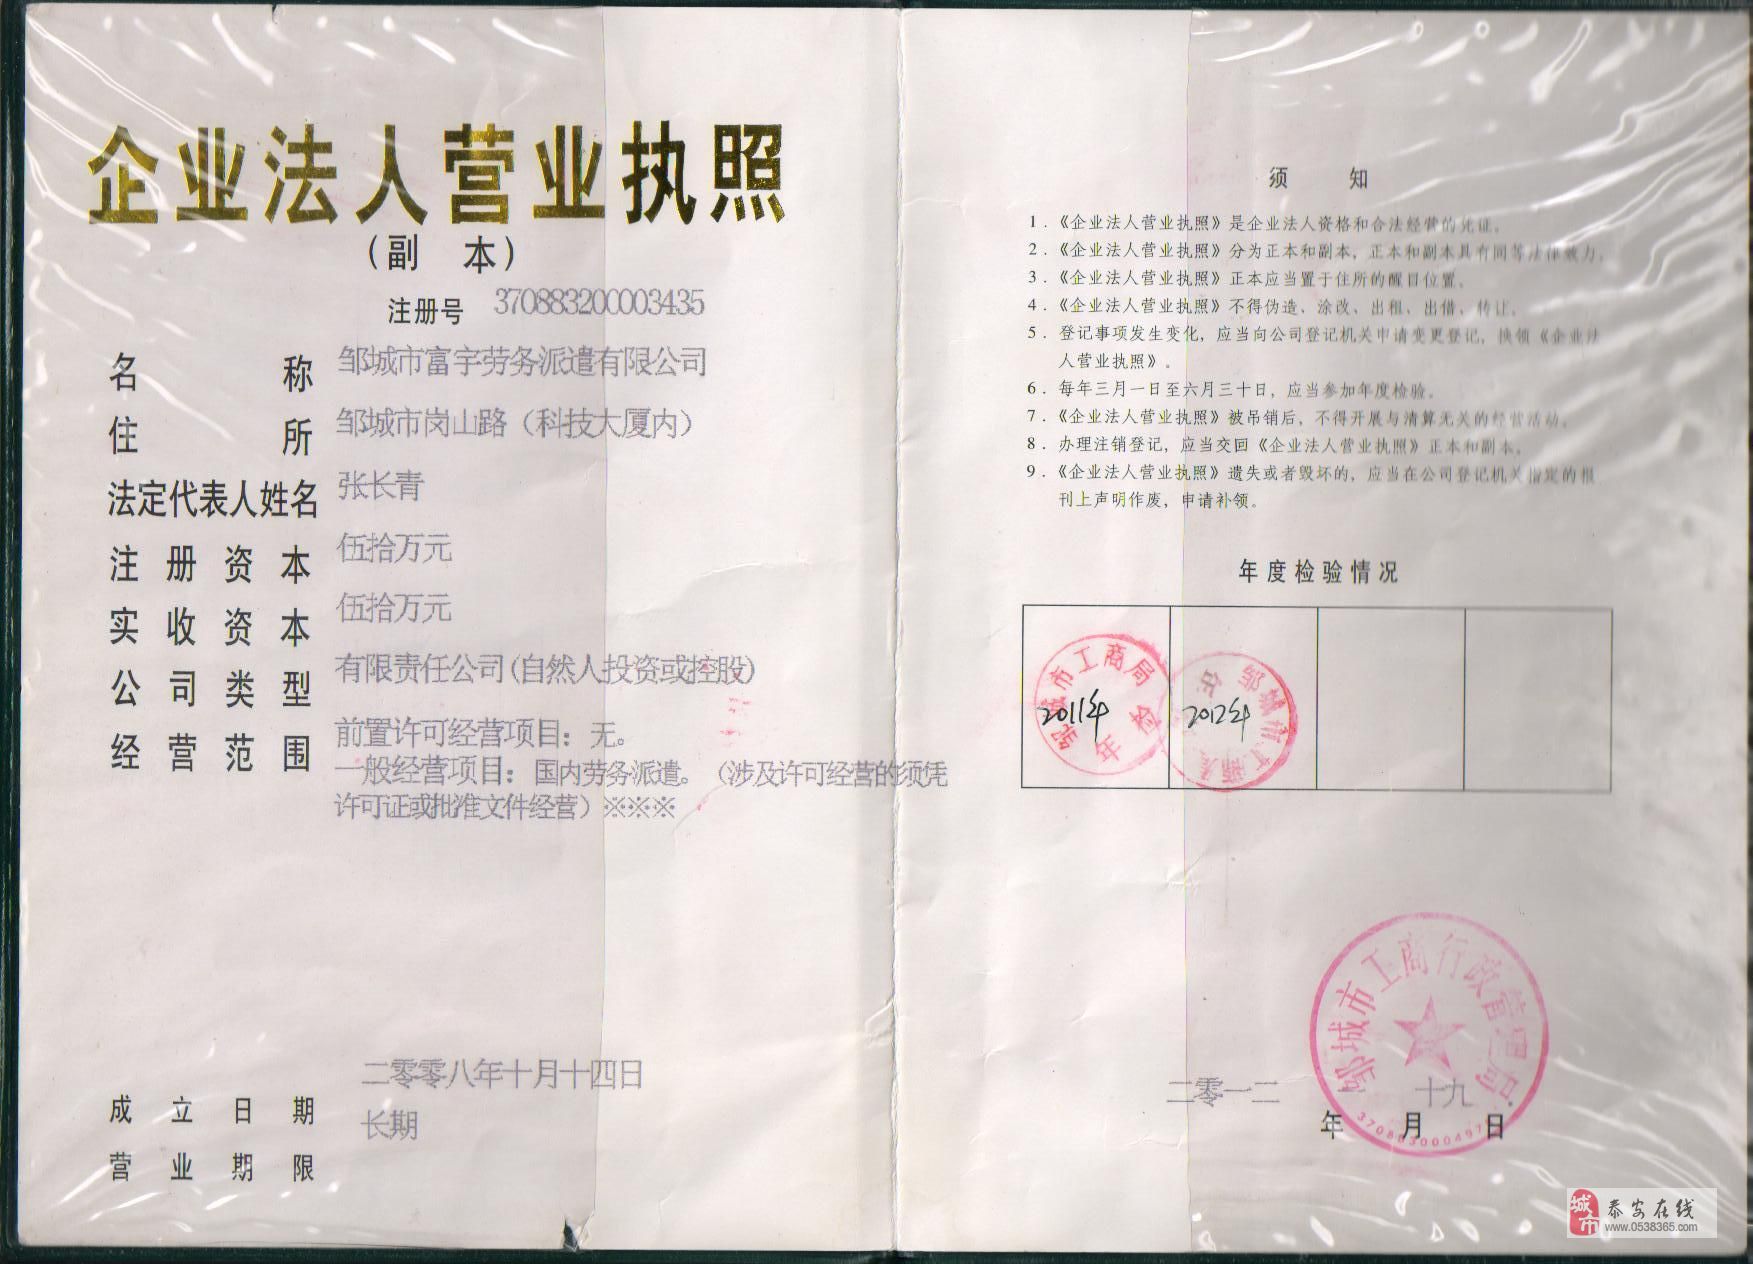 企业法人营业执照
（副 本）
注册号 370883200003435
名 称 邹城市富宇劳务派遣有限公司
住 所 邹城市岗山路（科技大厦内）
法定代表人姓名 张长青
注册资本 伍拾万元
实收资本 伍拾万元
公司类型 有限责任公司(自然人投资或控股)
经营范围 前置许可经营项目：无。
一般经营项目：国内劳务派遣。（涉及许可经营的须凭
许可证或批准文件经营）※※※
成立日期 二零零八年十月十四日
营业期限 长期
须 知
1．《企业法人营业执照》是企业法人资格和合法经营的凭证。
2．《企业法人营业执照》分为正本和副本，正本和副本具有同等法律效力。
3．《企业法人营业执照》正本应当置于住所的醒目位置。
4．《企业法人营业执照》不得伪造、涂改、出租、出借、转让。
5．登记事项发生变化，应当向公司登记机关申请变更登记，换领《企业法
人营业执照》。
6．每年三月一日至六月三十日，应当参加年度检验。
7．《企业法人营业执照》被吊销后，不得开展与清算无关的经营活动。
8．办理注销登记，应当交回《企业法人营业执照》正本和副本。
9．《企业法人营业执照》遗失或者毁坏的，应当在公司登记机关指定的报
刊上声明作废，申请补领。
年度检验情况
邹城市工商局
2011年
年检
2012年
邹城市工商行政管理局
二零一二 十九
年 月 日
城市
泰安在线
www.0538365.com